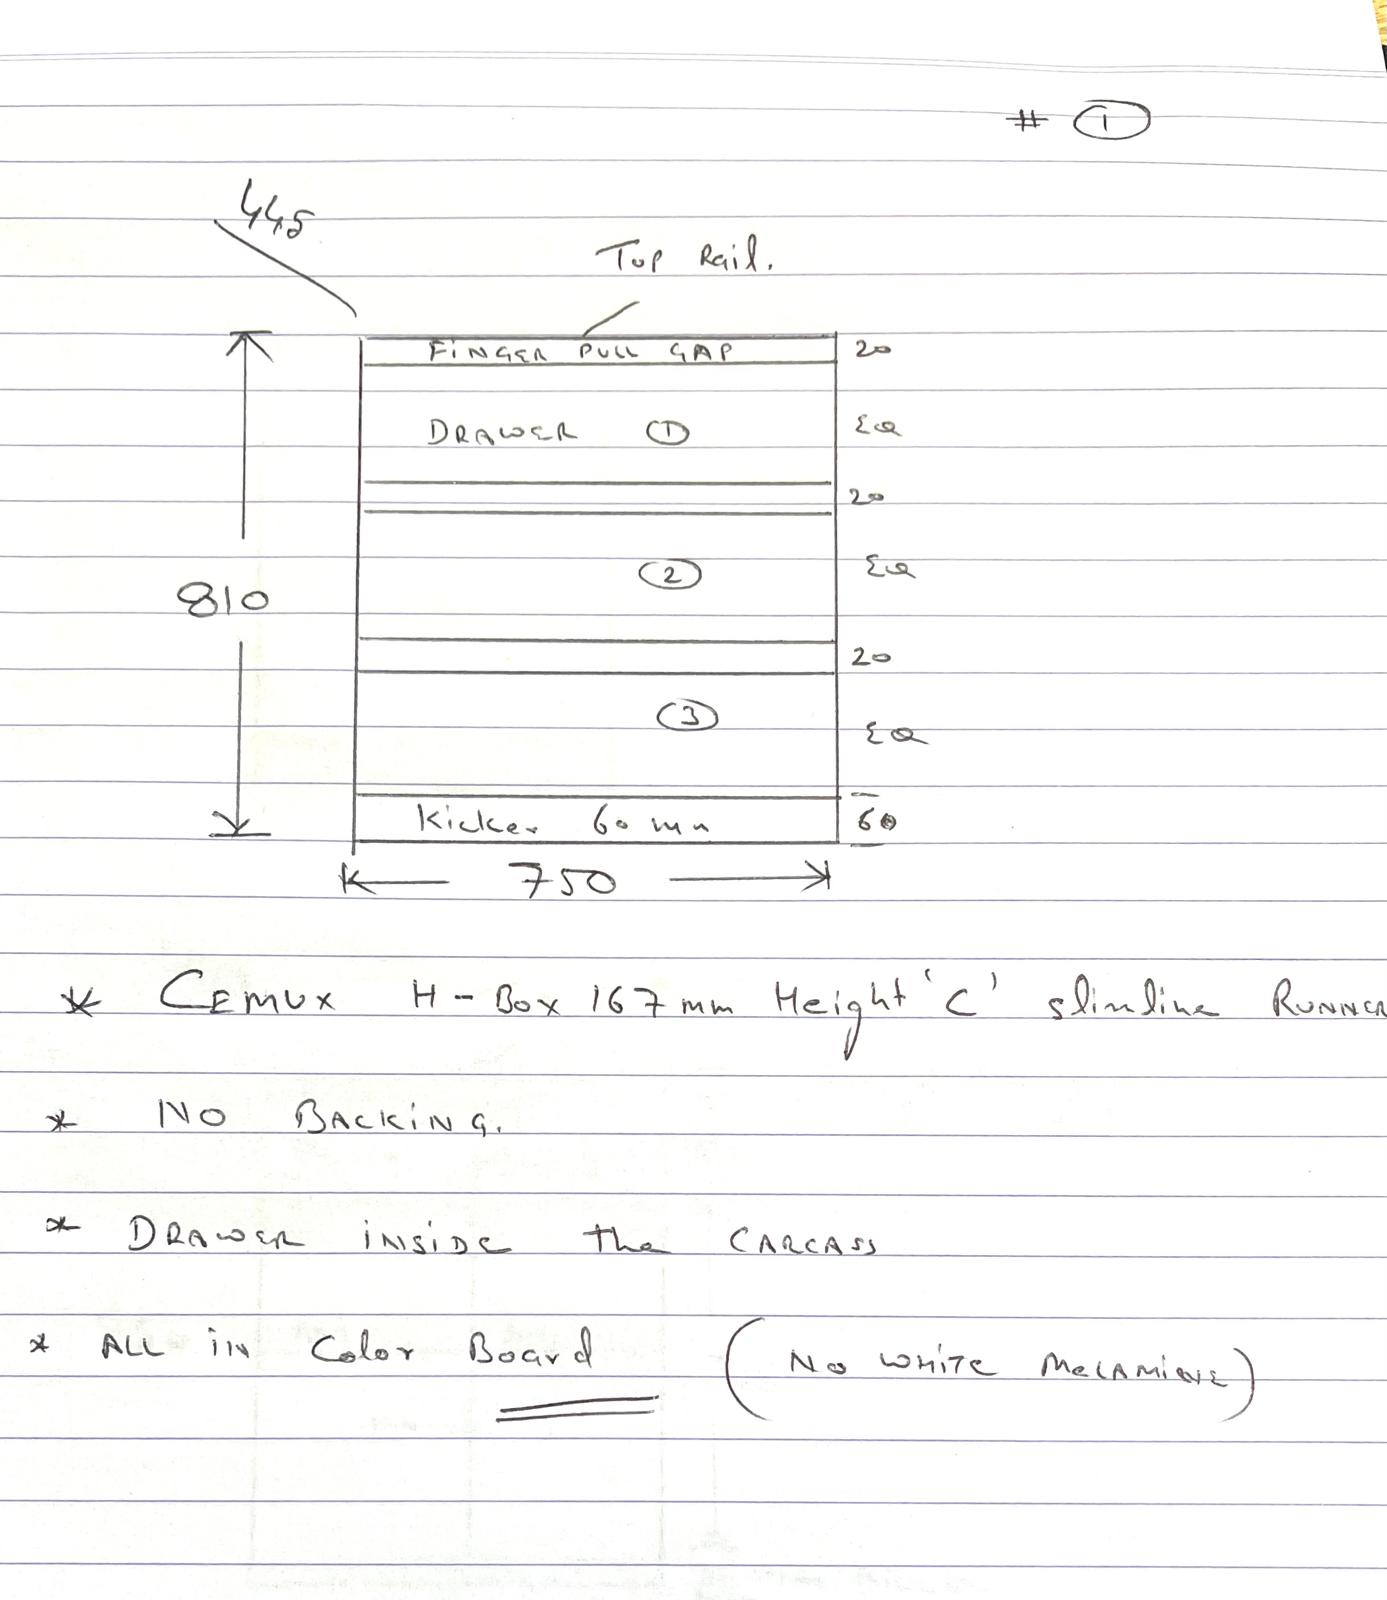 # 1
445
Top Rail.
FINGER PULL GAP 20
DRAWER 1 EQ
20
2 EQ
810
20
3 EQ
Kicker 60 mm 60
750
* CEMUX H-BOX 167 mm Height 'C' slimline RUNNER
* NO BACKING.
* DRAWER INSIDE the CARCASS
* ALL IN Color Board (NO WHITE MELAMINE)